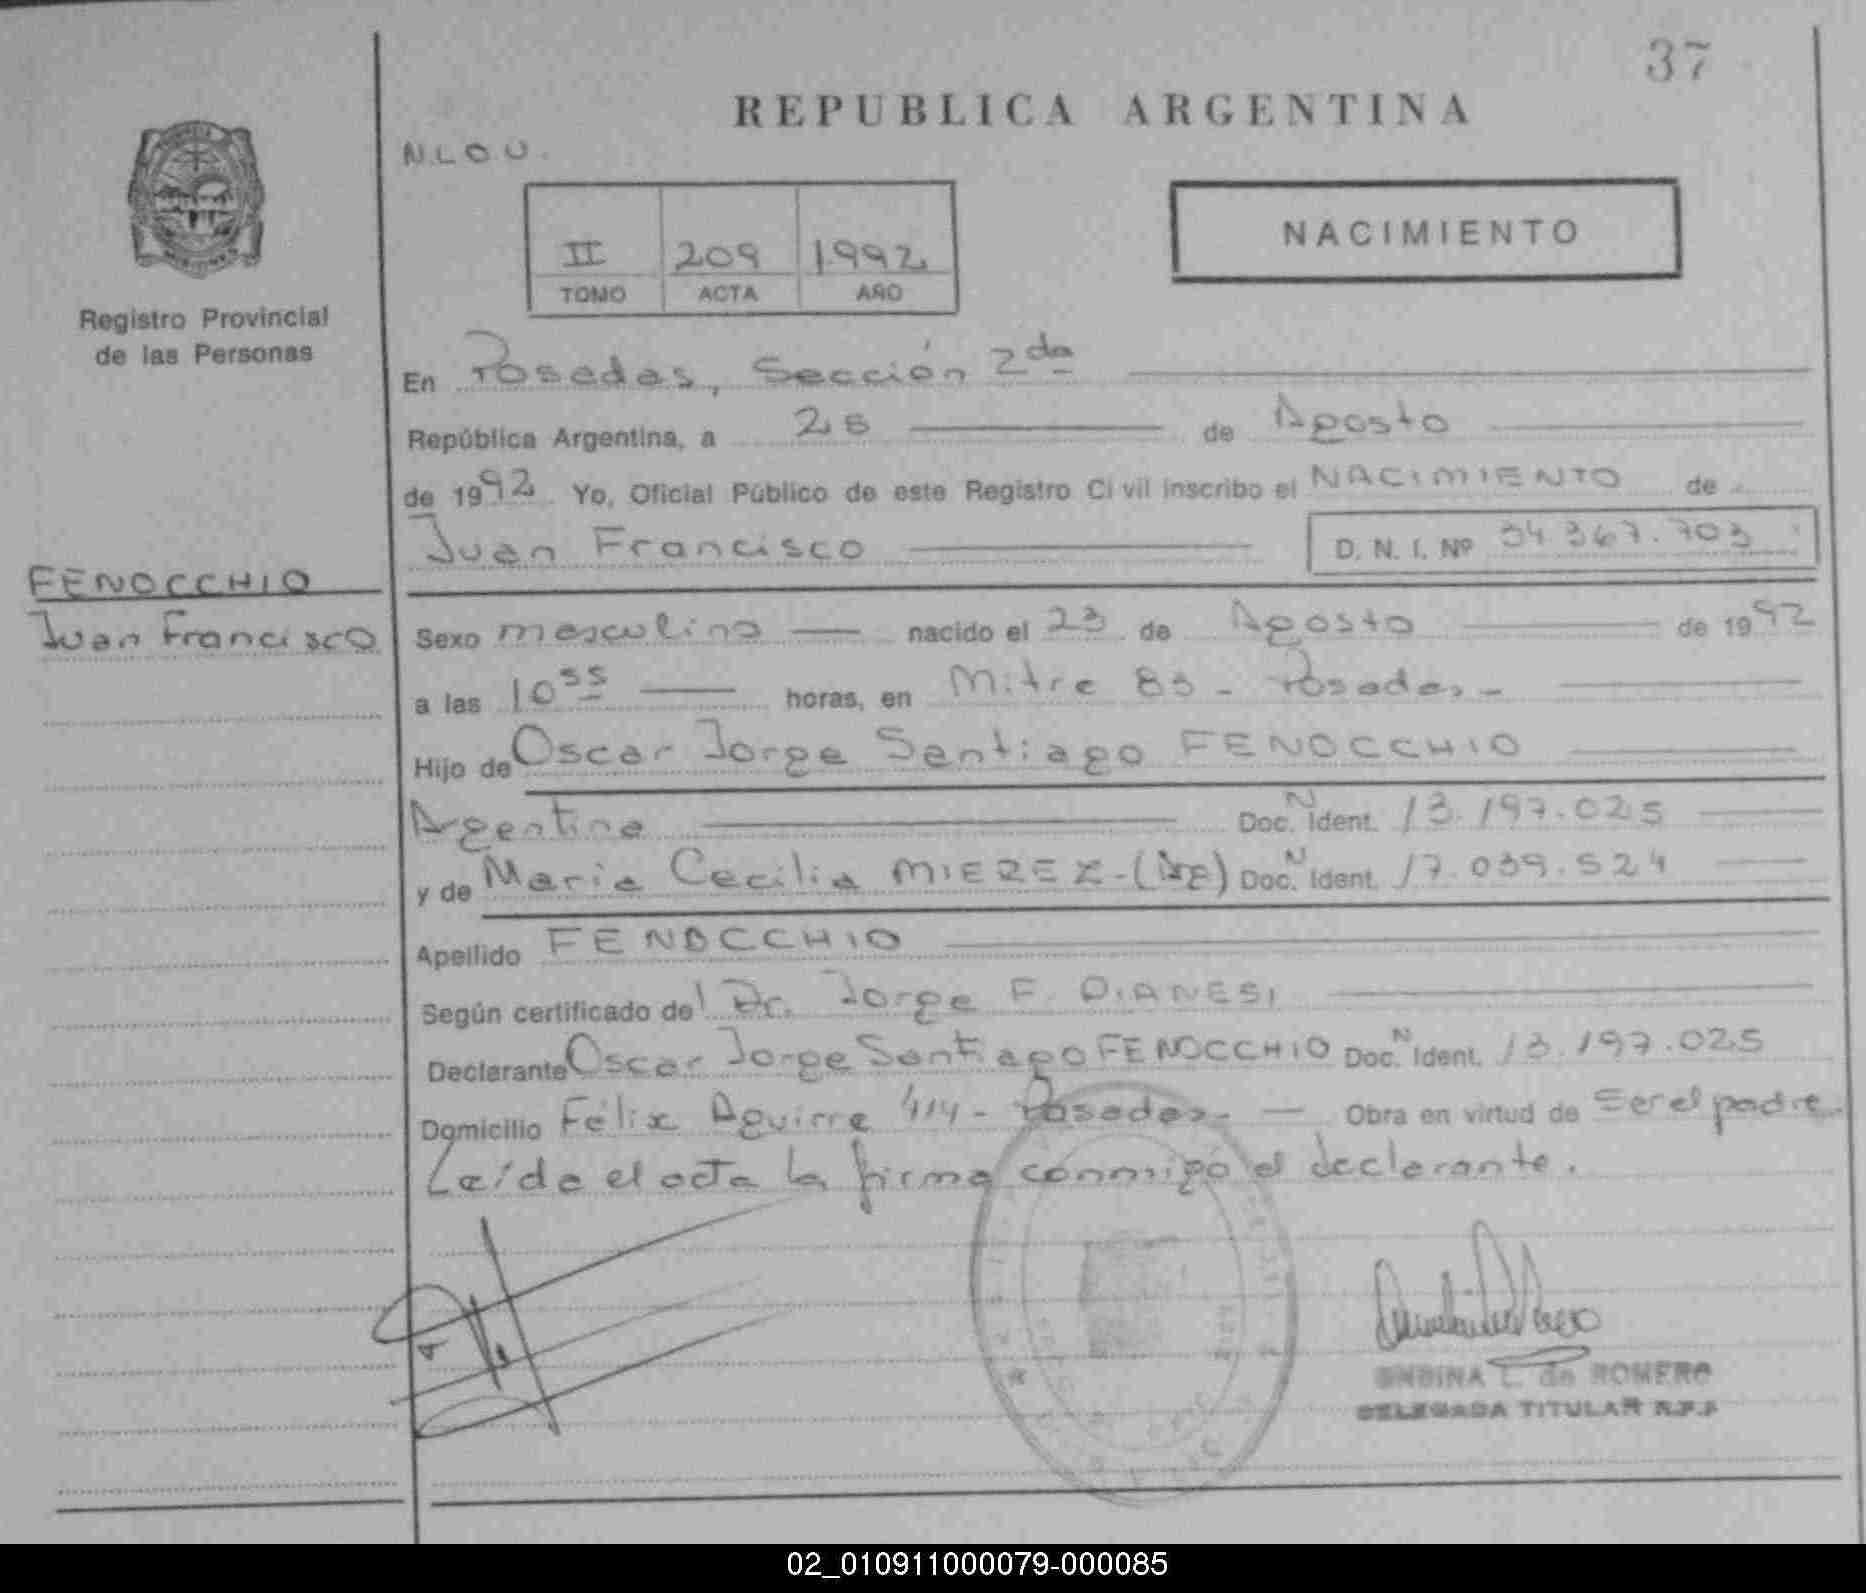 37
REPUBLICA ARGENTINA
N.L.O.U.
NACIMIENTO
II 209 1992
TOMO ACTA AÑO
Registro Provincial
de las Personas
En Posadas, Sección 2da
República Argentina, a 28 de Agosto
de 1992 Yo, Oficial Público de este Registro Civil inscribo el NACIMIENTO de
Juan Francisco D. N. I. Nº 34.367.703
FENOCCHIO
Juan Francisco
Sexo masculino nacido el 23 de Agosto de 1992
a las 10 55 horas, en Mitre 83 - Posadas -
Hijo de Oscar Jorge Santiago FENOCCHIO
Argentina Doc. N Ident. 13.197.025
y de Maria Cecilia MIEREZ - (Arg) Doc. N Ident. 17.039.524
Apellido FENOCCHIO
Según certificado del Dr. Jorge F. DIANESI
Declarante Oscar Jorge Santiago FENOCCHIO Doc. N Ident. 13.197.025
Domicilio Félix Aguirre 414 - Posadas - Obra en virtud de ser el padre.
Leída el acta la firma conmigo el declarante.
L. de ROMERO
DELEGADA TITULAR R.P.P
02_010911000079-000085